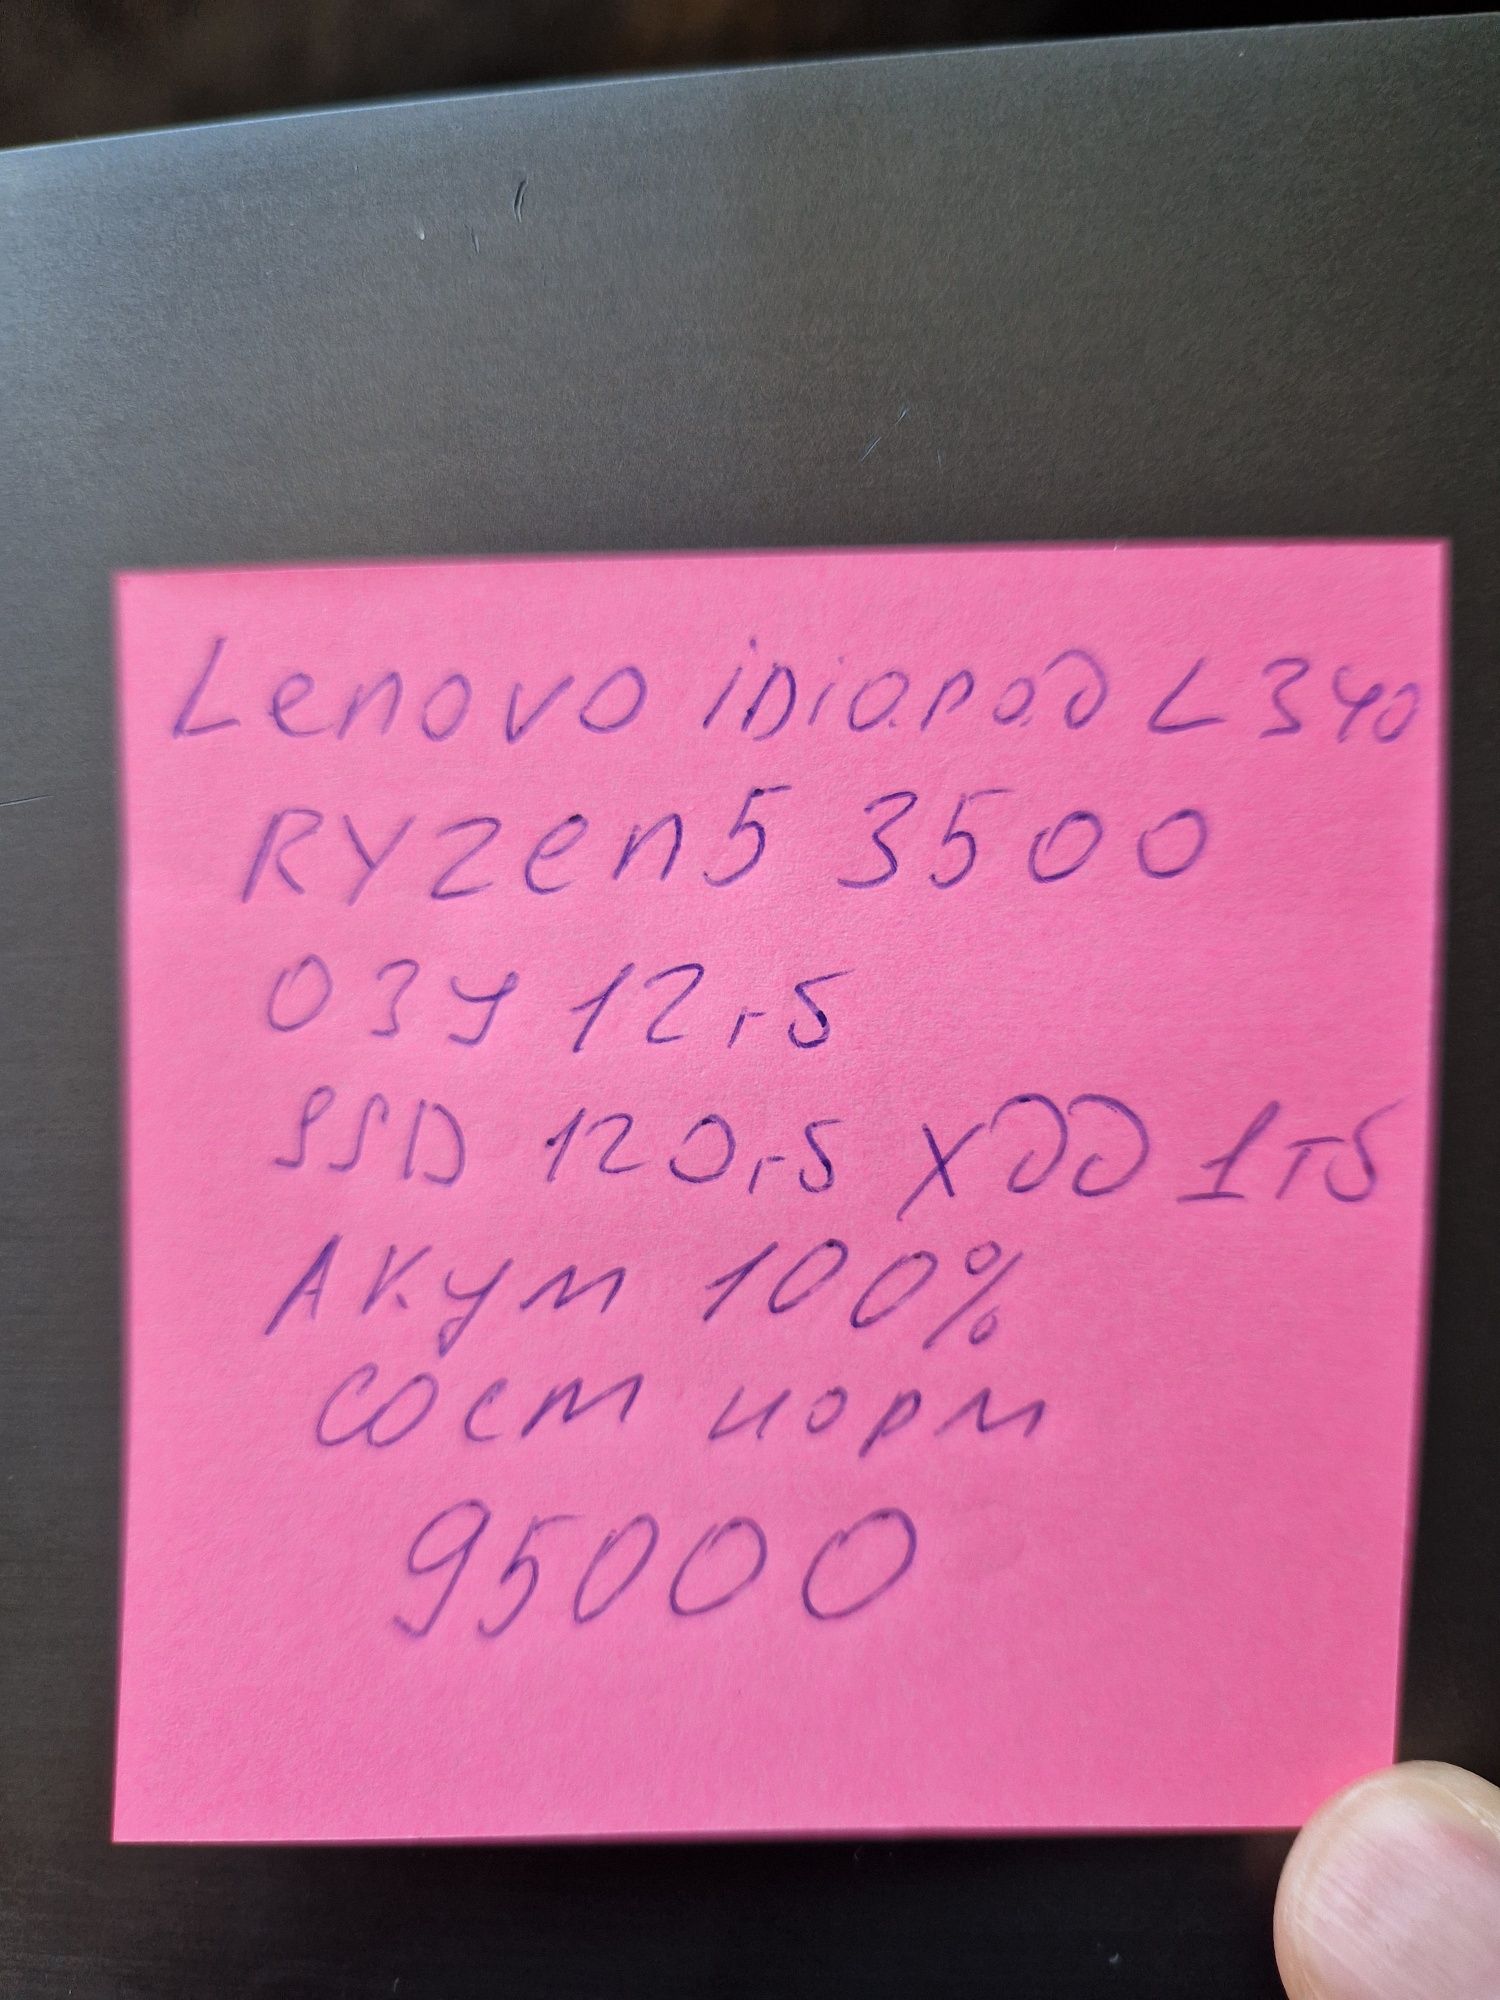 Lenovo iDiapad L340
Ryzen5 3500
ОЗУ 12гб
SSD 120гб ХДД 1тб
Акум 100%
сост норм
95000